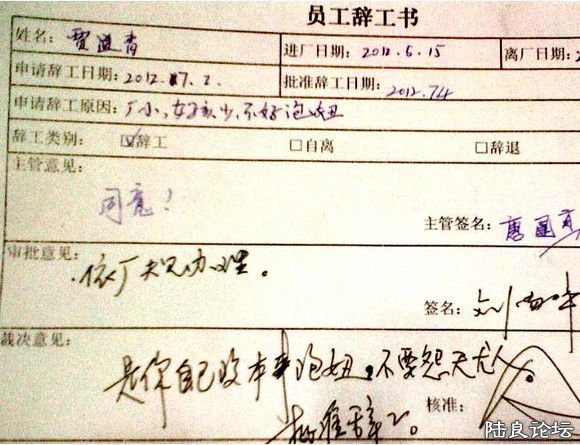 员工辞工书
姓名: 贾进青 进厂日期: 2012.6.15 离厂日期: 2
申请辞工日期: 2012.7.2. 批准辞工日期: 2012.7.4
申请辞工原因: 厂小,女孩少,不好泡妞
辞工类别: ☑辞工 □自离 □辞退
主管意见:
同意!
主管签名: 唐国
审批意见:
依厂规办理。
签名: 刘
裁决意见:
是你自己没本事泡妞,不要怨天尤人。
核准:
批准辞工。
陆良论坛